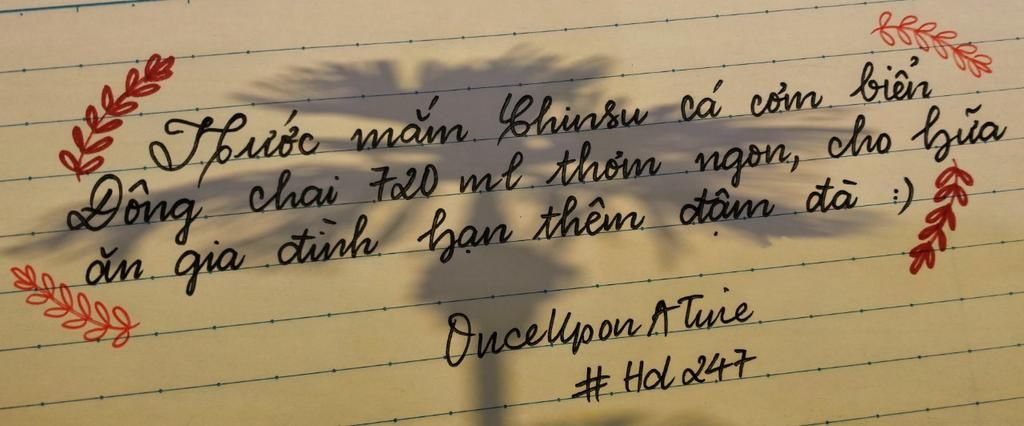 Nước mắm Chinsu cá cơm biển
Đông chai 720 ml thơm ngon, cho bữa
ăn gia đình bạn thêm đậm đà :)
OnceUponATime
#Hd247